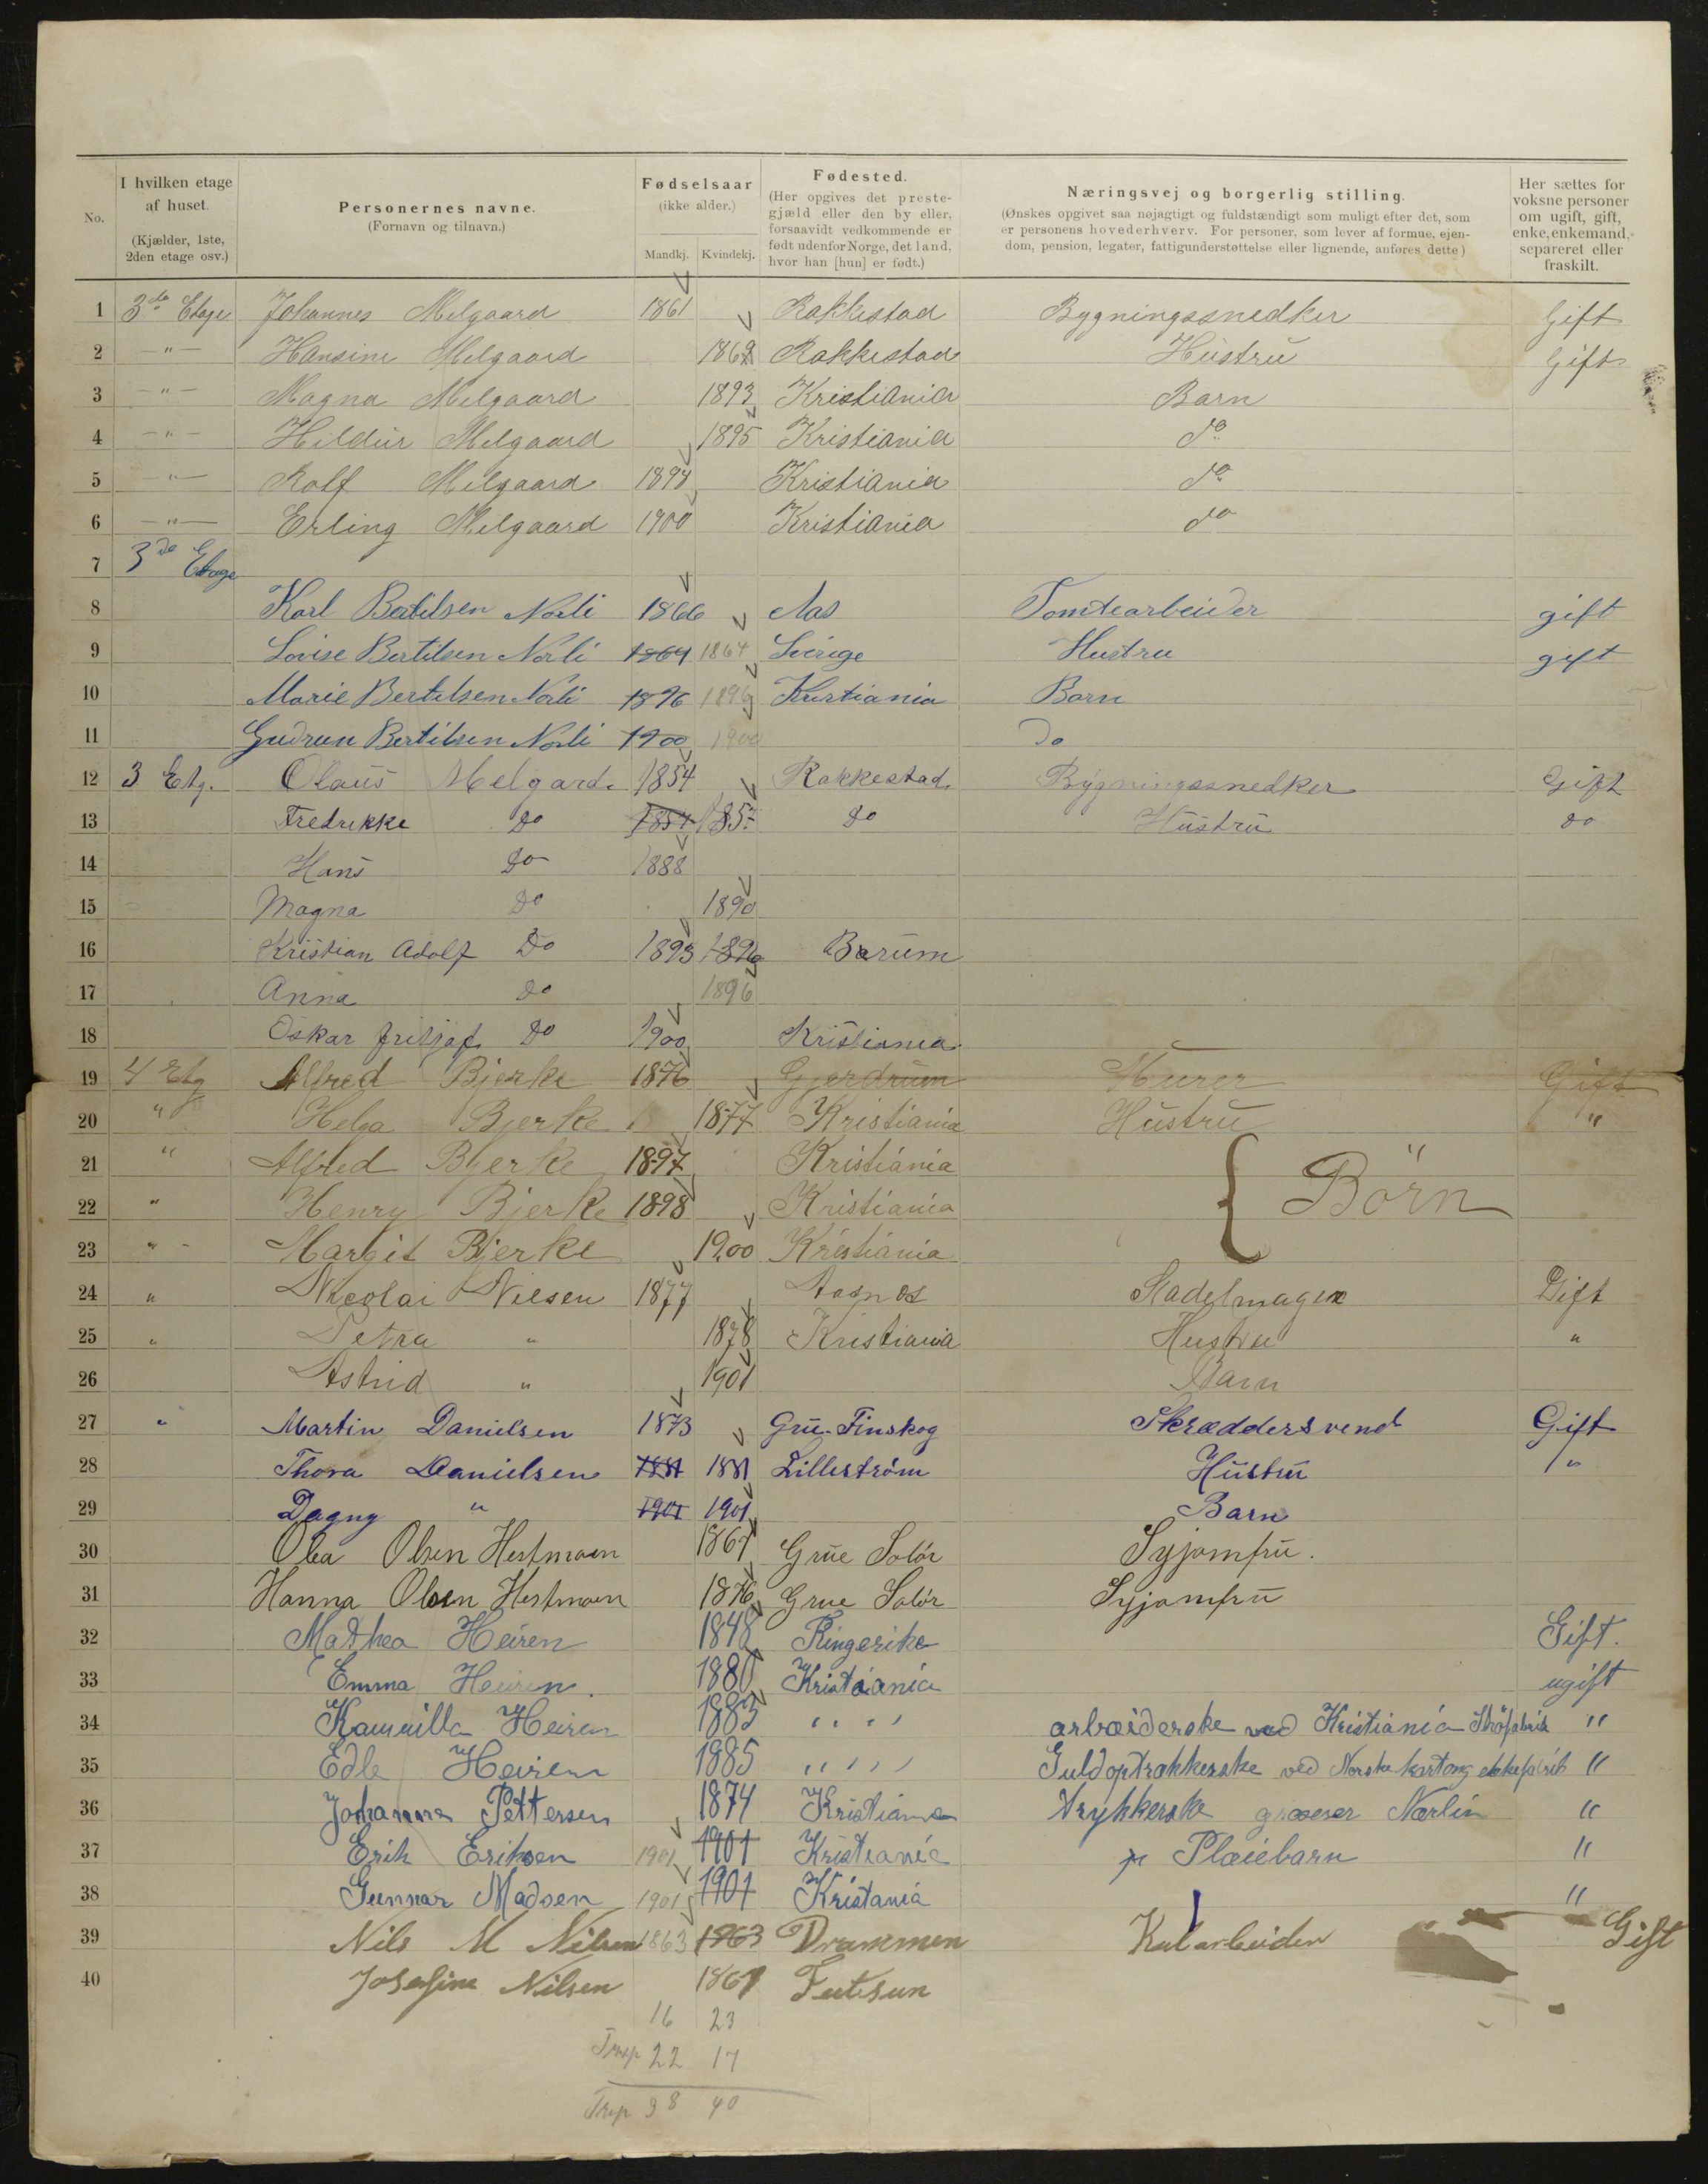 No.
I hvilken etage af huset.
(Kjælder, 1ste, 2den etage osv.)
Personernes navne.
(Fornavn og tilnavn.)
Fødselsaar
(ikke alder.)
Mandkj. Kvindekj.
Fødested.
(Her opgives det prestegjæld eller den by eller, forsaavidt vedkommende er født udenfor Norge, det land, hvor han [hun] er født.)
Næringsvej og borgerlig stilling.
(Ønskes opgivet saa nøjagtigt og fuldstændigt som muligt efter det, som er personens hovederhverv. For personer, som lever af formue, ejendom, pension, legater, fattigunderstøttelse eller lignende, anføres dette)
Her sættes for voksne personer om ugift, gift, enke, enkemand, separeret eller fraskilt.
1 3de Etage Johannes Melgaard 1861 Rakkestad Bygningssnedker Gift
2 —"— Hansine Melgaard 1862 Rakkestad Hustru Gift
3 —"— Magna Melgaard 1893 Kristiania Barn
4 —"— Hildur Melgaard 1895 Kristiania do
5 —"— Rolf Melgaard 1898 Kristiania do
6 —"— Erling Melgaard 1900 Kristiania do
7 3de Etage
8 Karl Bertilsen Norli 1866 Aas Tomtearbeider gift
9 Lovise Bertilsen Norli 1864 1864 Sverige Hustru gift
10 Marie Bertilsen Norli 1896 1896 Kristiania Barn
11 Gudrun Bertilsen Norli 1900 1900 Do
12 3 Etg. Olaus Melgard. 1854 Rakkestad. Bygningssnedker Gift
13 Fredrikke Do 1857 185 Do Hustru Do
14 Hans Do 1888
15 Magna Do 1890
16 Kristian Adolf Do 1893 1896 Bærum
17 Anna Do 1896
18 Oskar Fritjof Do 1900 Kristiania
19 4 Etg Alfred Bjerke 1876 Gjerdrum Murer Gift
20 " Helga Bjerke 1877 Kristiania Hustru "
21 " Alfred Bjerke 1897 Kristiania { Börn
22 " Henry Bjerke 1898 Kristiania
23 " - Margit Bjerke 1900 Kristiania
24 " Nicolai Nilsen 1877 Aasnes Sadelmager Gift
25 " Petra " 1878 Kristiania Hustru "
26 Astrid " 1901 Barn
27 " Martin Danielsen 1873 Grue-Finskog Skræddersvend Gift
28 Thora Danielsen 1881 1881 Lilleström Hustru "
29 Dagny " 1901 1901 Barn
30 Olea Olsen Hestmoen 1867 Grue Solör Syjomfru.
31 Hanna Olsen Hestmoen 1876 Grue Solör Syjomfru
32 Mathea Heiren 1848 Ringerike Gift.
33 Emma Heiren. 1880 Kristiania ugift
34 Kamilla Heiren 1883 " " arbeiderske ved Kristiania Skofabrik "
35 Edle Heiren 1885 " " Guldoptrækkerske ved Norske kartong eskefabrik "
36 Johanna Pettersen 1874 Kristiania trykkerske Nærlin "
37 Erik Eriksen 1901 1901 Kristiania Plæiebarn "
38 Gunnar Madsen 1901 1901 Kristania "
39 Nils M Nilsen 1863 1863 Drammen Kularbeider Gift
40 Josefine Nilsen 1867
16 23
Trsp 22 17
Trsp 38 40